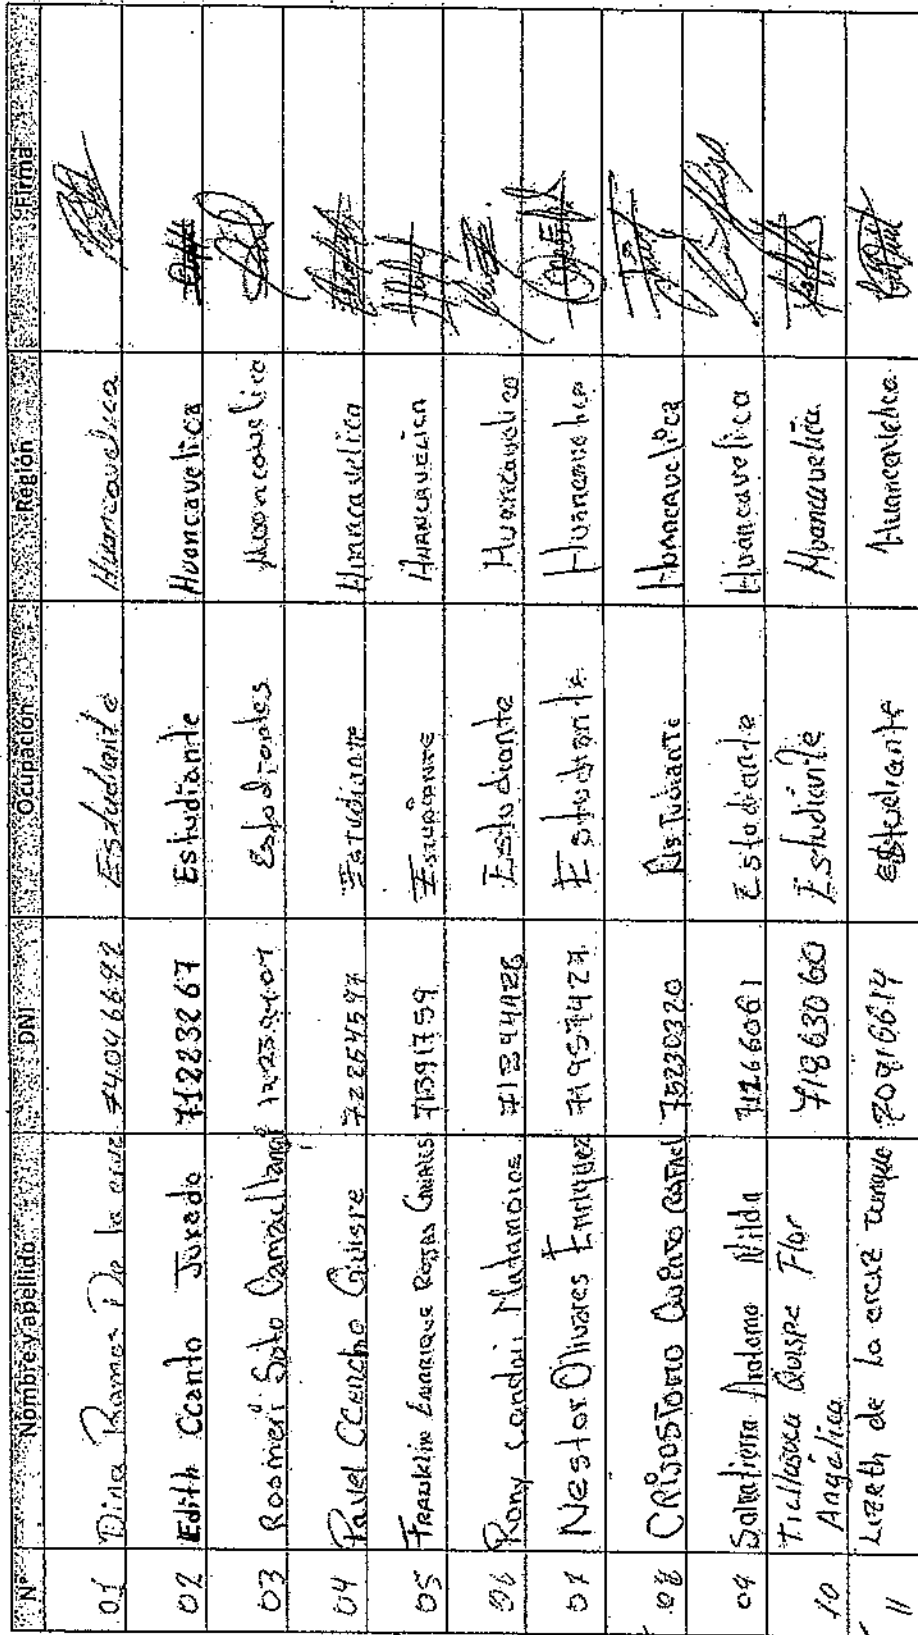 N° Nombre y apellido DNI Ocupación Región Firma
01 Dina Ramos De la cruz 74046692 Estudiante Huancavelica
02 Edith Ccanto Jurado 71223267 Estudiante Huancavelica
03 Rosmeri Soto Estudiantes Huancavelica
04 Pavel CCencho Quispe 72254597 Estudiante Huancavelica
05 FRANKlin ENRRIQUE ROJAS CANALES 71591759 ESTUDIANTE HUANCAVELICA
06 Rony Candori Matamoros Estudiante Huancavelica
07 Nestor Olivares Enriquez 71957427 Estudiante Huancavelica
08 CRISOSTOMO QUINTO RAFAEL 75230320 EsTudianTe Huancavelica
09 Salvatierra Nilda 71266061 Estudiante Huancavelica
10 Ticllasuca Quispe Flor 71863060 Estudiante Huancavelica
Angélica
11 Lizeth de la cruz Estudiante Huancavelica